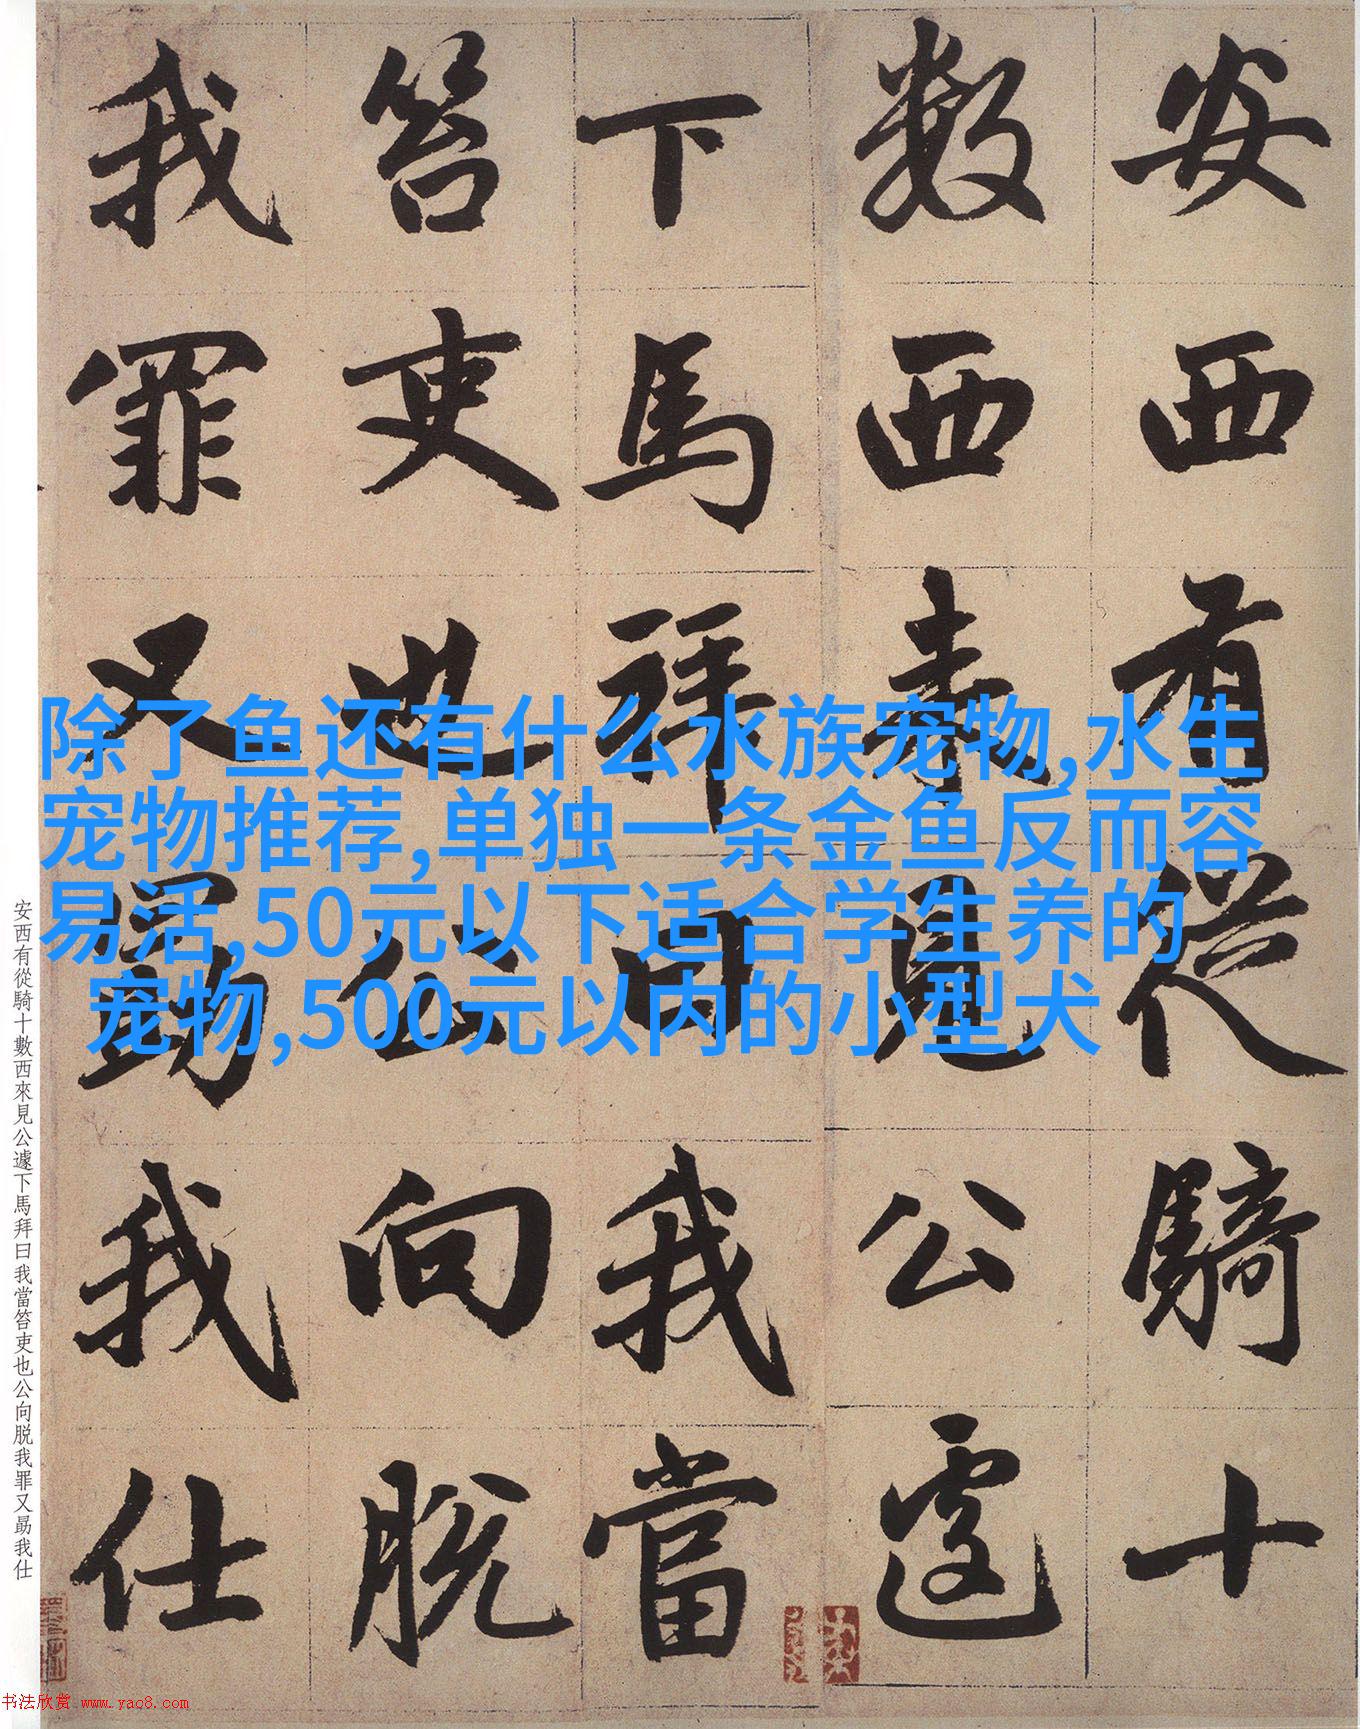 安西有從騎十
數西來見公遽
下馬拜曰我當
笞吏也公向脫
我罪又勗我仕
除了鱼还有什么水族宠物,水生
宠物推荐,单独一条金鱼反而容
易活,50元以下适合学生养的
宠物,500元以内的小型犬
安西有從騎十數西來見公遽下馬拜曰我當笞吏也公向脱我罪又勗我仕
书法欣赏 www.yac8.com